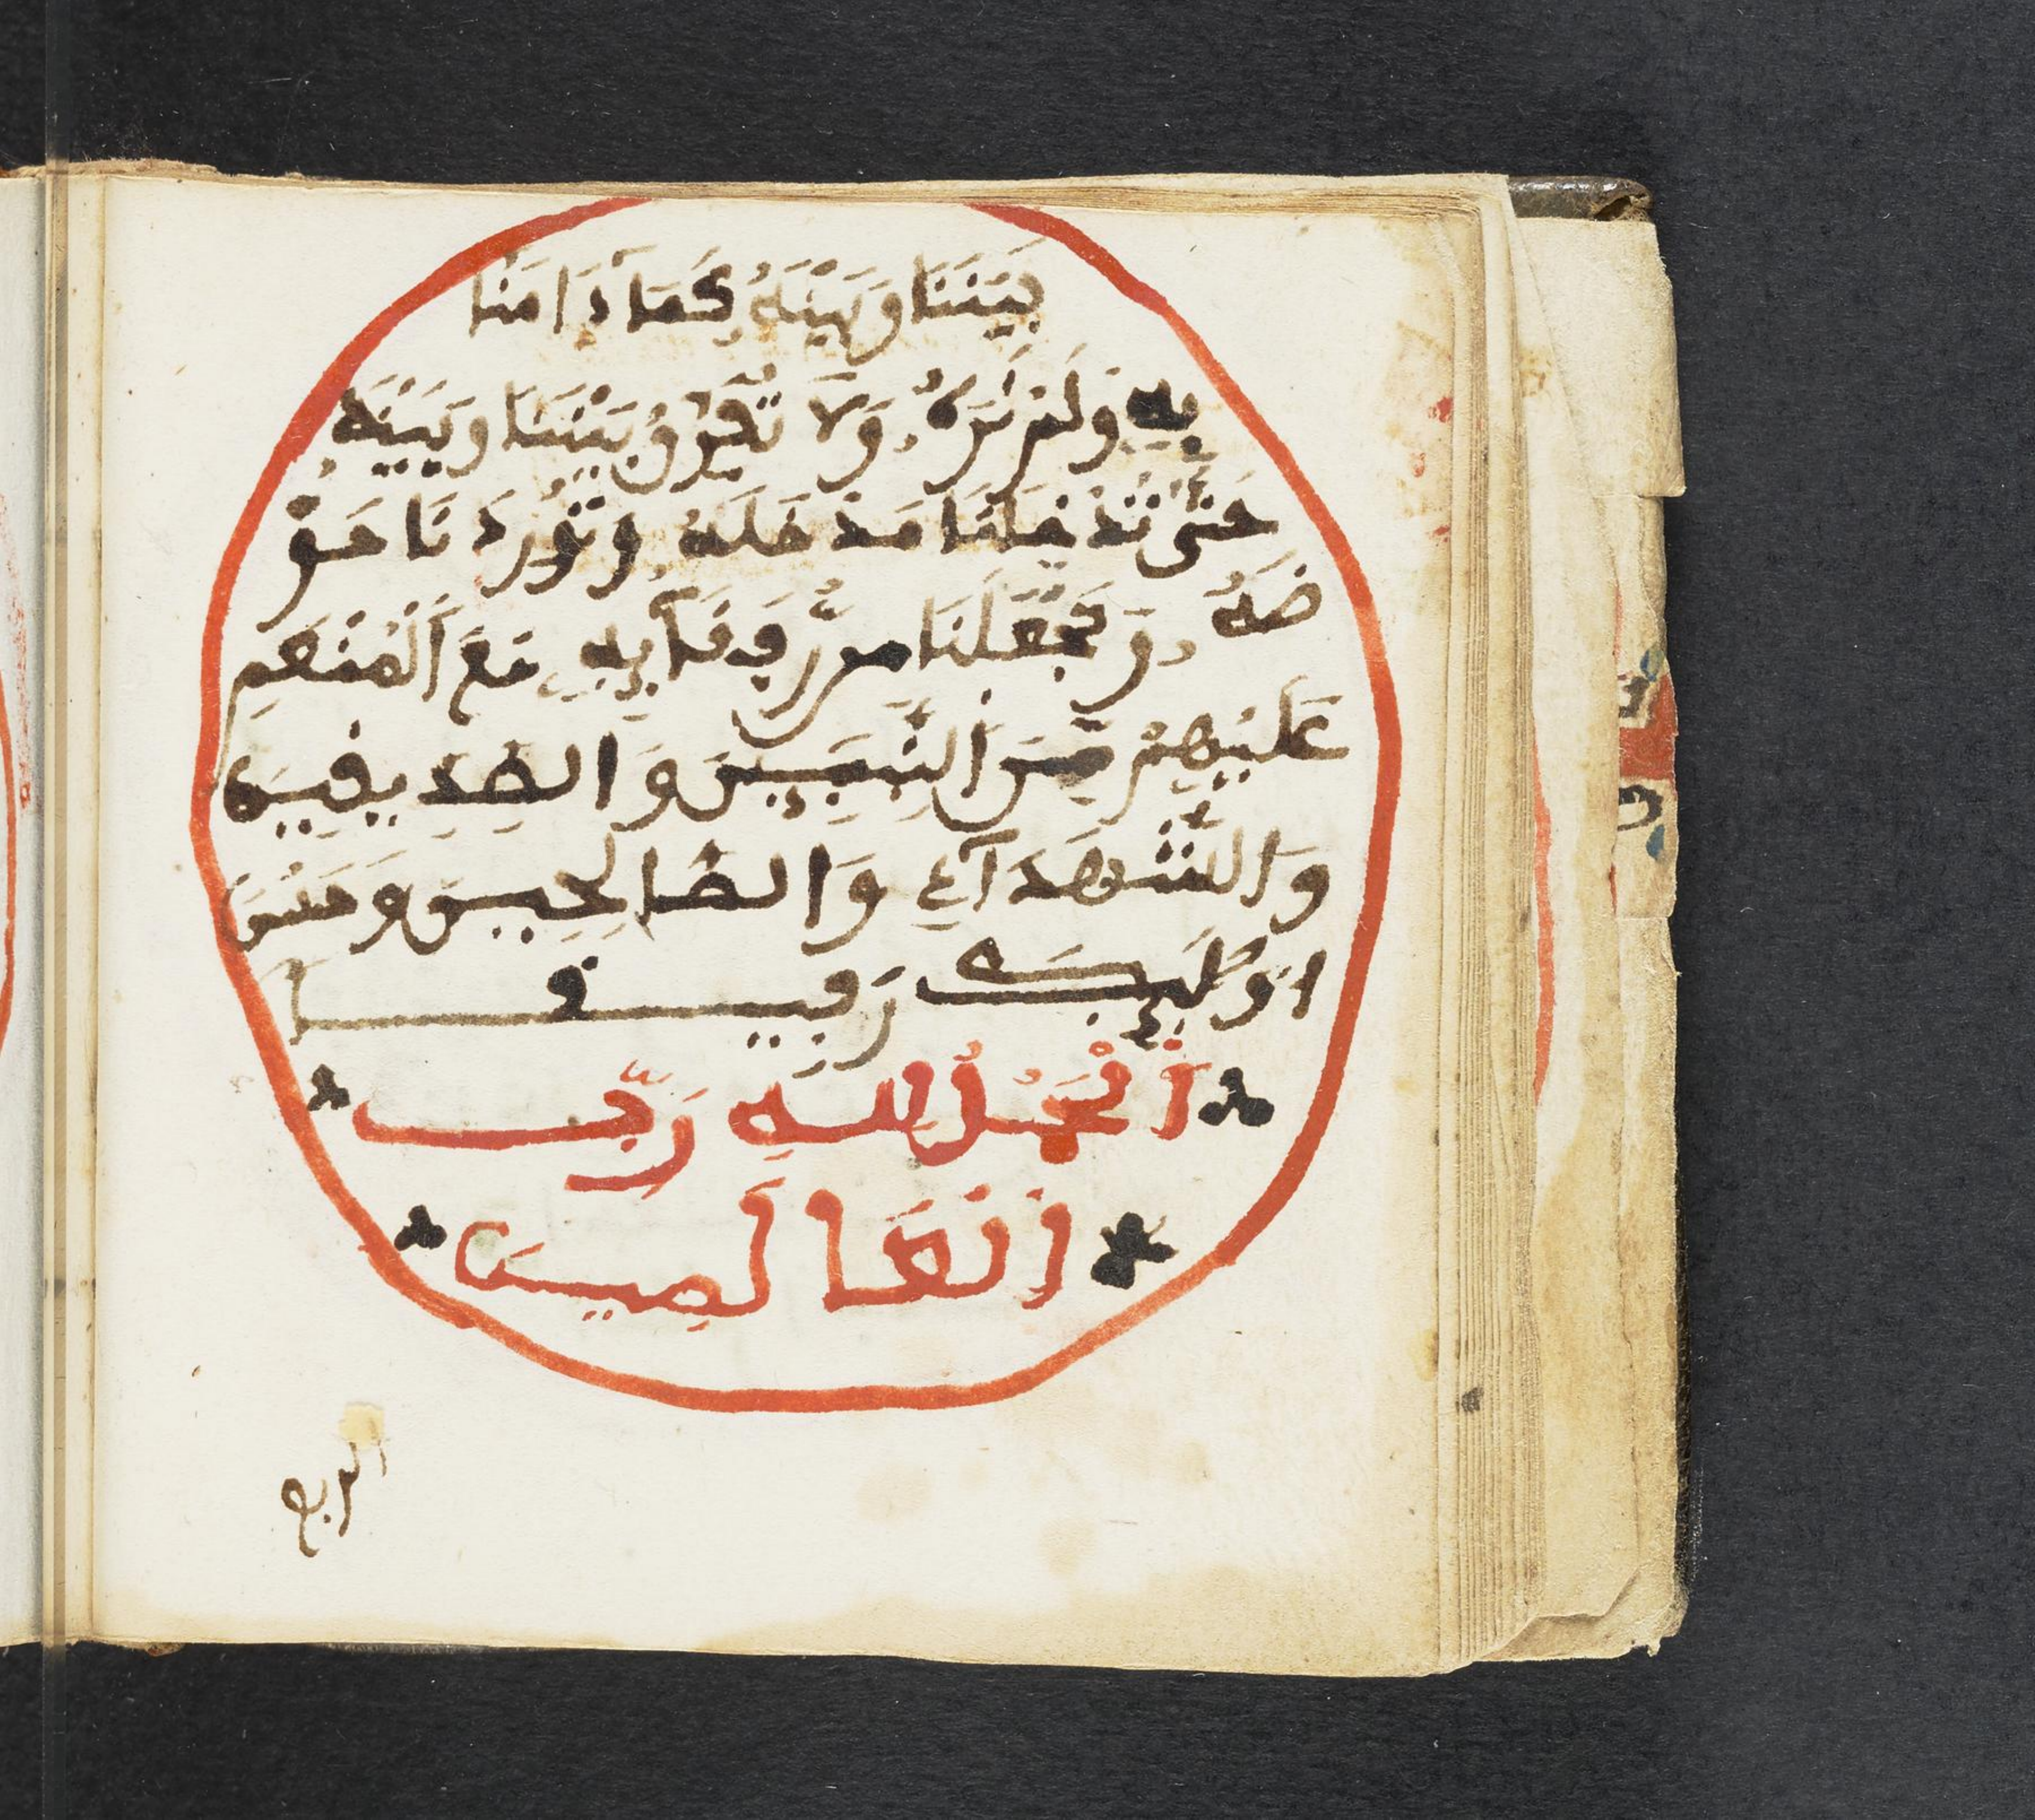 بَيْنَنَا وَبَيْنَهُ كَمَا ءَامَنَّا
بِهِ وَلَمْ نَرَهُ وَلَا تُفَرِّقْ بَيْنَنَا وَبَيْنَهُ
حَتَّى تُدْخِلَنَا مَدْخَلَهُ وَتُورِدَنَا حَوْ
ضَهُ وَتَجْعَلَنَا مِن رُّفَقَآئِهِ مَعَ الْمُنْعَمِ
عَلَيْهِمْ مِّنَ النَّبِيِّينَ وَالصِّدِّيقِينَ
وَالشُّهَدَآءِ وَالصَّالِحِينَ وَحَسُنَ
أُوْلَئِكَ رَفِيقًا
اَلْحَمْدُ لِلَّهِ رَبِّ
الْعَالَمِينَ
الربع